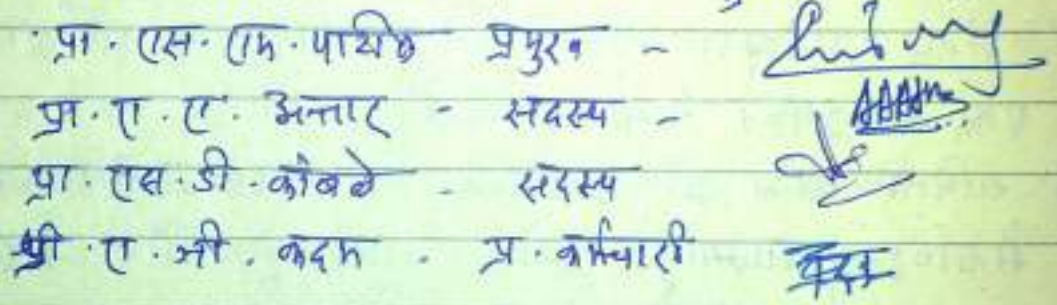 प्रा. एस. एम. पाटील प्रमुख -
प्रा. ए. ए. अत्तार - सदस्य -
प्रा. एस. डी. कांबळे - सदस्य
श्री. ए. जी. कदम - प्र. कर्मचारी कदम